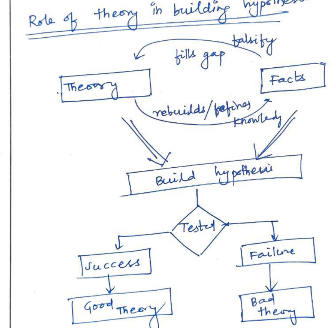 Role of theory in building hypothesis
falsify
fills gap
Theory
Facts
rebuilds/refines
knowledge
Build hypothesis
Tested
Success
Failure
Good Theory
Bad
theory